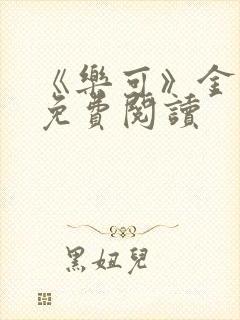 《樂可》金
免費閱讀
黑妞兒